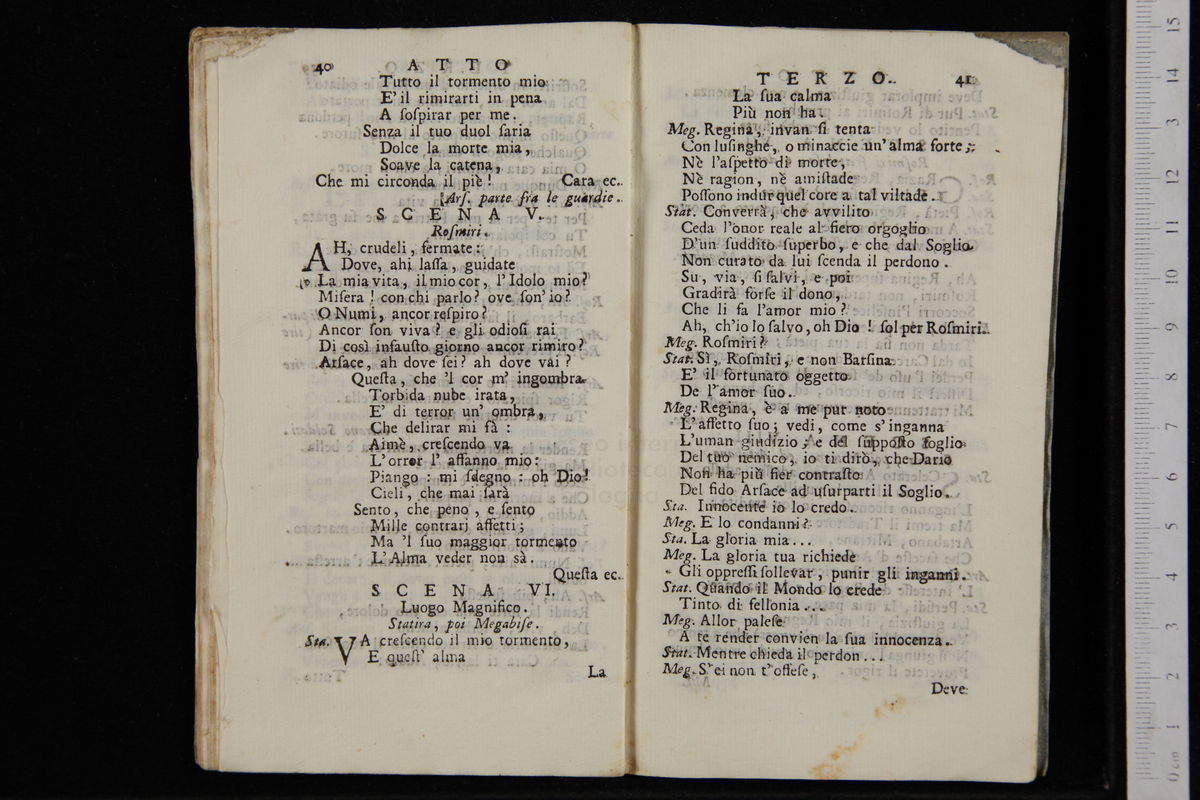 40 ATTO
Tutto il tormento mio
E' il rimirarti in pena
A ſoſpirar per me.
Senza il tuo duol ſaria
Dolce la morte mia,
Soave la catena,
Che mi circonda il piè! Cara ec.
[Arſ. parte fra le guardie.
SCENA V.
Roſmiri.
AH, crudeli, fermate:
Dove, ahi laſſa, guidate
La mia vita, il mio cor, l'Idolo mio?
Miſera! con chi parlo? ove ſon' io?
O Numi, ancor reſpiro?
Ancor ſon viva? e gli odioſi rai
Di così infauſto giorno ancor rimiro?
Arſace, ah dove ſei? ah dove vai?
Queſta, che 'l cor m' ingombra
Torbida nube irata,
E' di terror un' ombra,
Che delirar mi fà:
Aimè, creſcendo va
L'orror l' affanno mio:
Piango: mi ſdegno: oh Dio!
Cieli, che mai ſarà
Sento, che peno, e ſento
Mille contrarj affetti;
Ma 'l ſuo maggior tormento
L'Alma veder non sà.
Queſta ec.
SCENA VI.
Luogo Magnifico.
Statira, poi Megabiſe.
Sta. VA creſcendo il mio tormento,
E queſt' alma
La
TERZO. 41
La ſua calma
Più non ha.
Meg. Regina, invan ſi tenta
Con luſinghe, o minaccie un' alma forte;
Nè l'aſpetto di morte,
Nè ragion, nè amiſtade
Poſſono indur quel core a tal viltade.
Stat. Converrà, che avvilito
Ceda l'onor reale al fiero orgoglio
D'un ſuddito ſuperbo, e che dal Soglio
Non curato da lui ſcenda il perdono.
Su, via, ſi ſalvi, e poi
Gradirà forſe il dono,
Che li fa l'amor mio?
Ah, ch'io lo ſalvo, oh Dio! ſol per Roſmiri.
Meg. Roſmiri?
Stat. Sì, Roſmiri, e non Barſina
E' il fortunato oggetto
De l'amor ſuo.
Meg. Regina, è a me pur noto
L'affetto ſuo; vedi, come s'inganna
L'uman giudizio; e del ſuppoſto foglio
Del tuo nemico, io ti dirò, che Dario
Non ha più fier contraſto
Del fido Arſace ad uſurparti il Soglio.
Sta. Innocente io lo credo.
Meg. E lo condanni?
Sta. La gloria mia...
Meg. La gloria tua richiede
Gli oppreſſi ſollevar, punir gli inganni.
Stat. Quando il Mondo lo crede
Tinto di fellonia...
Meg. Allor paleſe
A te render convien la ſua innocenza.
Stat. Mentre chieda il perdon...
Meg. S' ei non t' offeſe,
Deve